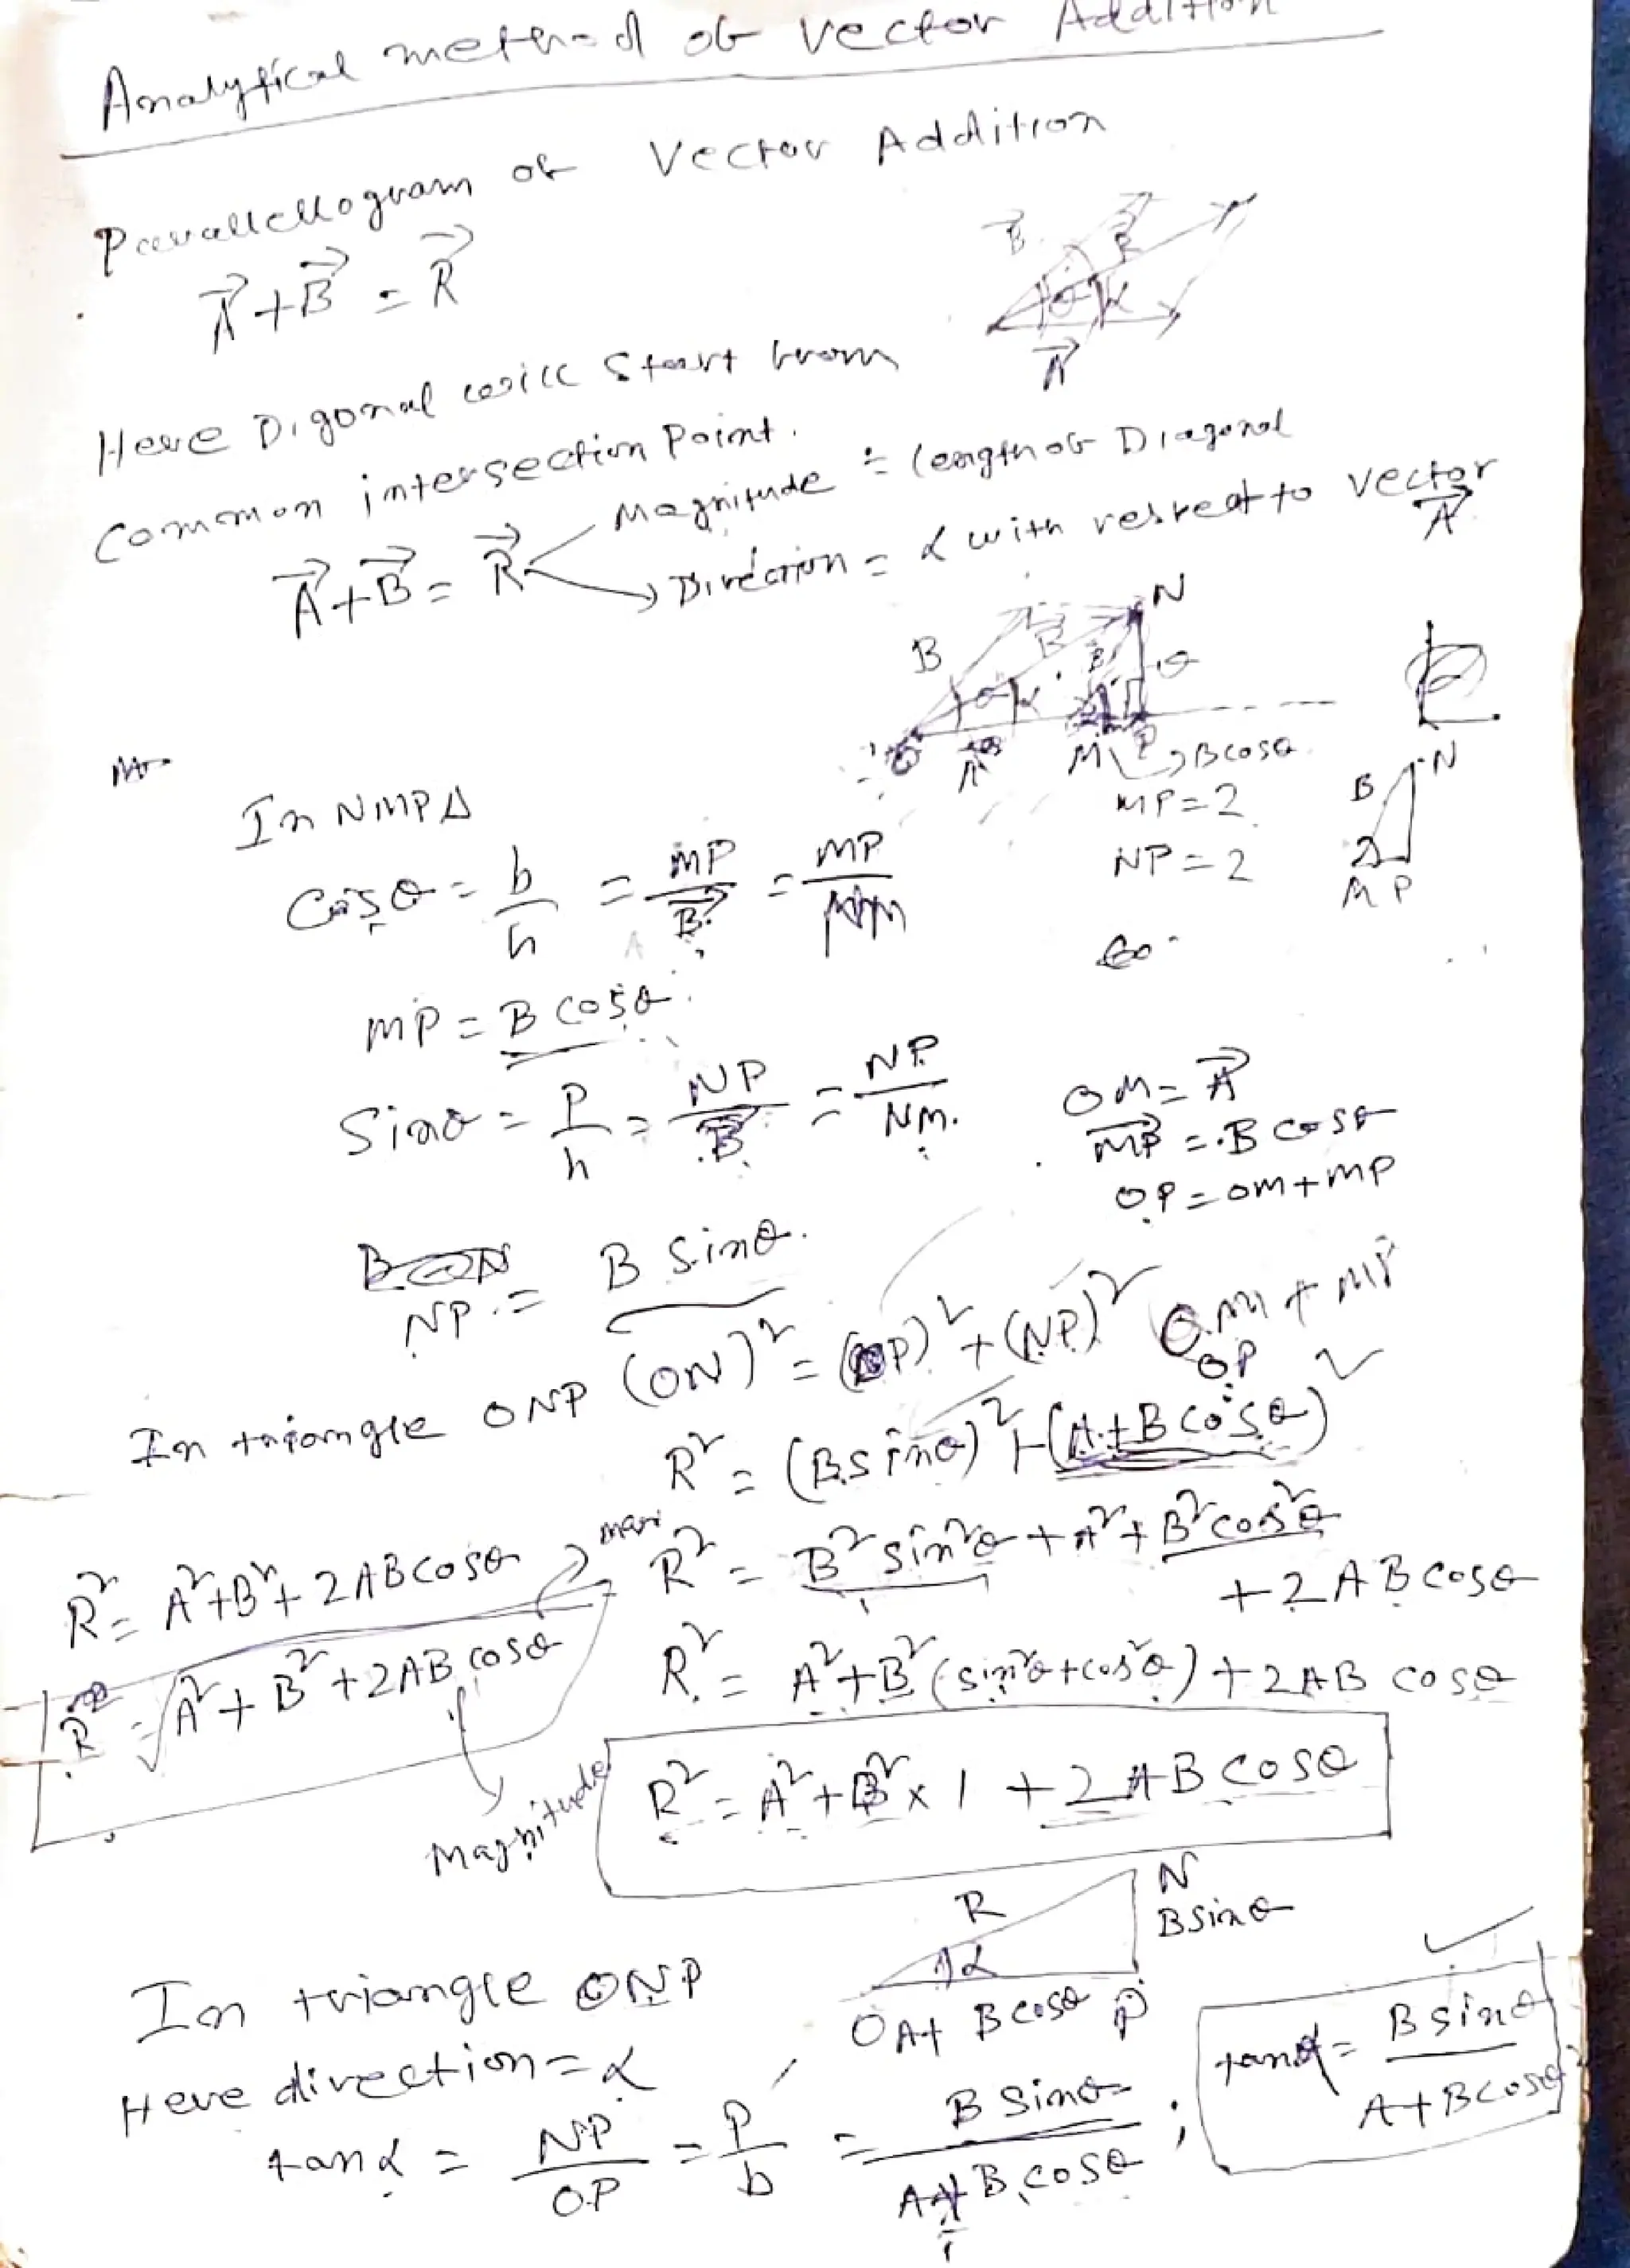 Analytical method of Vector Addition
Parallellogram of Vector Addition
A⃗ + B⃗ = R⃗
B⃗ R⃗
θ α
A⃗
Here Digonal will start from
common intersection Point.
A⃗ + B⃗ = R⃗
Magnitude = length of Diagonal
Direction = α with respect to vector A⃗
N
B R⃗ B θ
θ α
O A M P → B cosθ
In NMP Δ
MP = ?
NP = ?
B N
M P
Cosθ = b/h = MP/B⃗ = MP/NM
MP = B cosθ
Sinθ = P/h = NP/B⃗ = NP/NM.
OM = A⃗
MP⃗ = B cosθ
OP = OM + MP
NP = B Sinθ.
In triangle ONP (ON)² = (OP)² + (NP)²
OM + MP
OP
R² = (B sinθ)² + (A + B cosθ)²
R² = B² sin²θ + A² + B² cos²θ
+ 2AB cosθ
R² = A² + B² + 2AB cosθ
R² = A² + B² (sin²θ + cos²θ) + 2AB cosθ
R = √A² + B² + 2AB cosθ
Magnitude
R² = A² + B² x 1 + 2AB cosθ
R N
B sinθ
α
O A + B cosθ P
In triangle ONP
Here direction = α
tan α = NP/OP = P/b = B Sinθ/A + B cosθ ;
tan α = B sinθ/A + B cosθ